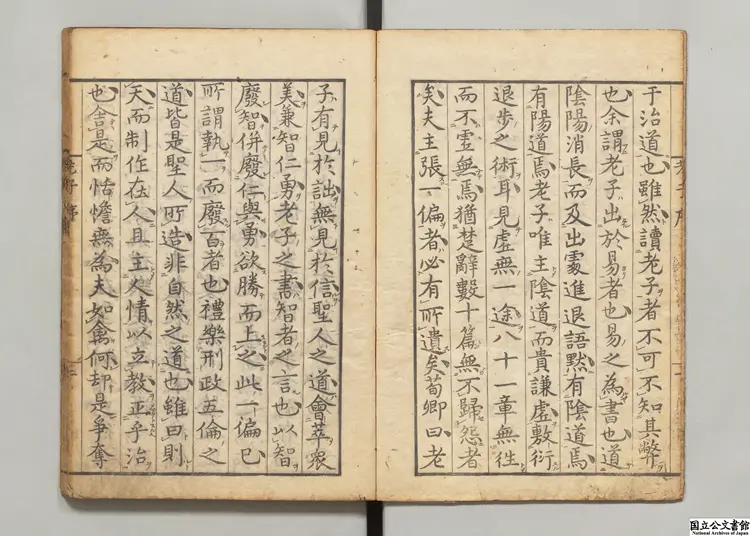 于治道也雖然讀老子者不可不知其弊
也余謂老子出於易者也易之為書也道
陰陽消長而及出處進退語默有陰道焉
有陽道焉老子唯主陰道而貴謙虛敷衍
退步之術耳見虛無一途八十一章無往
而不虛無焉猶楚辭數十篇無不歸怨者
矣夫主張一偏者必有所遺矣荀卿曰老
子有見於詘無見於信聖人之道會萃眾
美兼智仁勇老子之書知者之言也以智
廢智併廢仁與勇欲勝而上之此一偏已
所謂執一而廢百者也禮樂刑政五倫之
道皆是聖人所造非自然之道也雖曰則
天而制作在人且主人情以立教正乎治
也舍是而恬憺無為夫如禽何却是爭奪
国立公文書館
National Archives of Japan